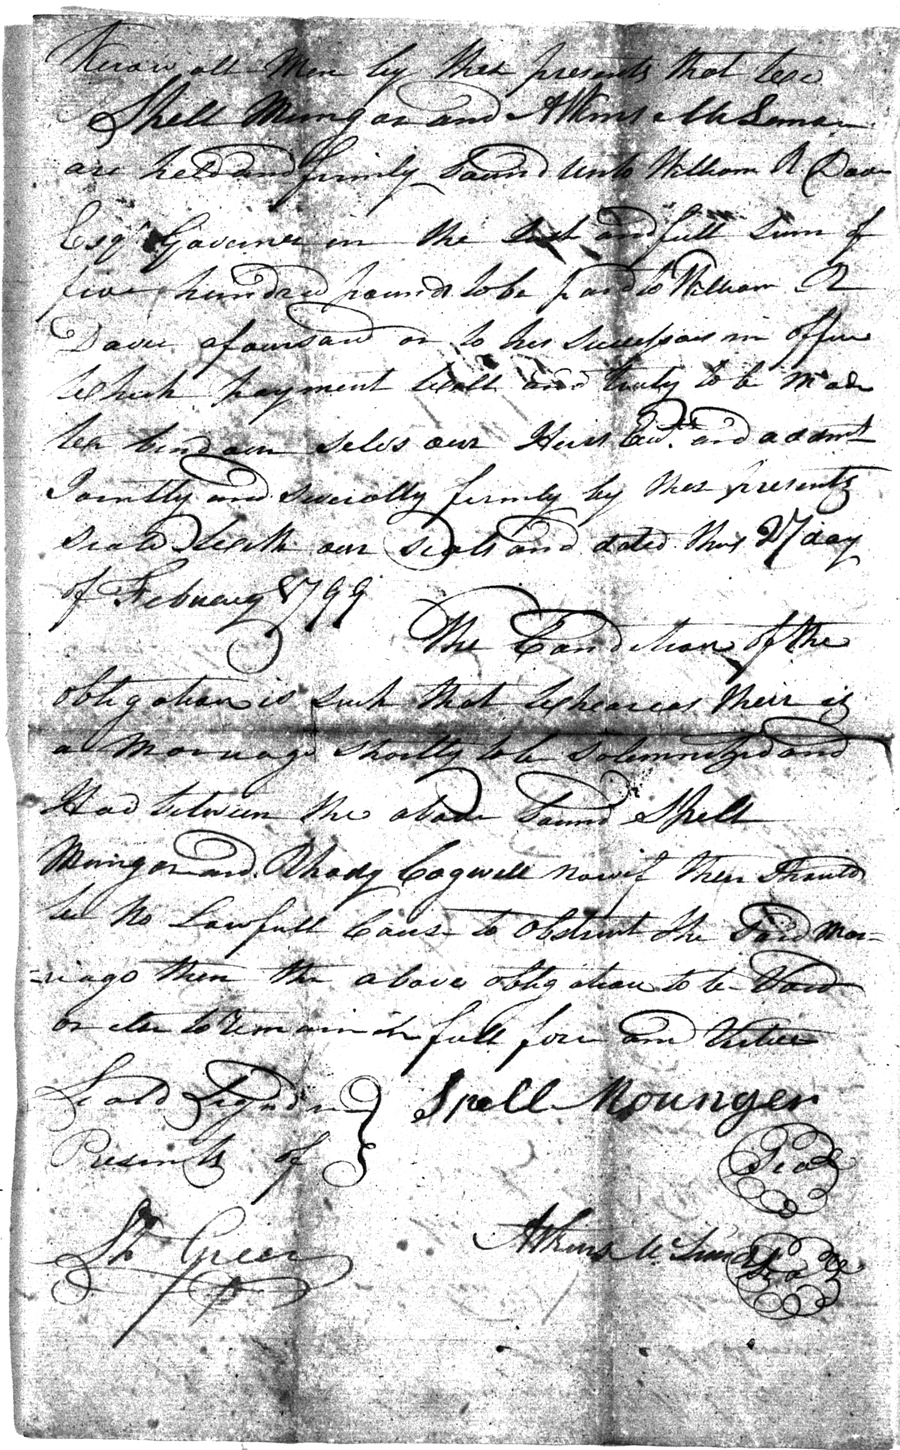 Know all Men by thes presents that we
Spell Mungar and Atkins McLemar
are held and firmly bound unto William R Davie
Esqr Governer in the Just and full sum of
five hundred pounds to be paid to William R
Davie afouresaid or to his successors in offise
which payment well and truly to be made
we bind our selvs our Heirs Exr. and admst
Jointly and severally firmly by thes presents
seald with our seals and dated this 27 day
of February 1799
The Condition of the
obligation is such that wheareas their is
a Marriage shortly to be solemnized and
Had between the above bound Spell
Mungar and Rhody Cogwell now if their should
be No Lawfull Caus to obstruct the said Mar-
-riage then the above obligation to be Void
or else to remain in full forse and Virtue
Seald Signd in
Presents of
Spell Mounger
Seal
Sh Greer
Atkins Mc
Seal